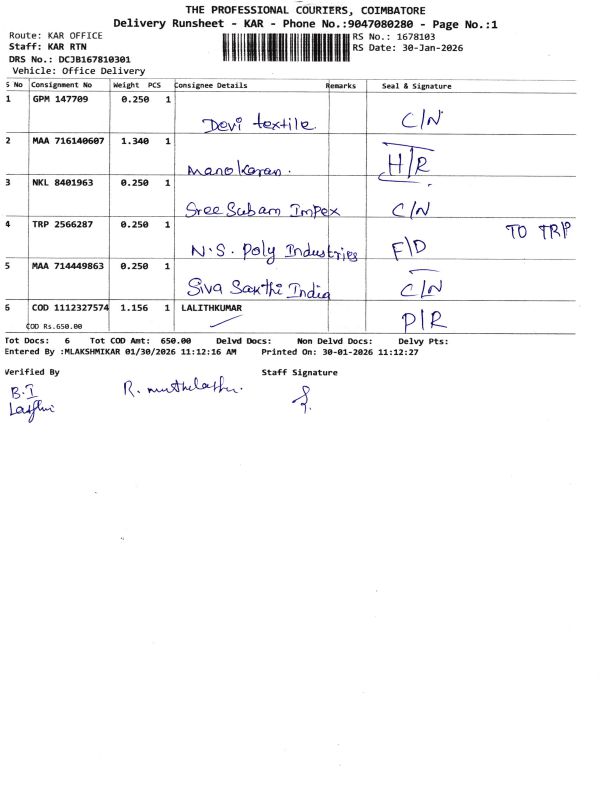 THE PROFESSIONAL COURIERS, COIMBATORE
Delivery Runsheet - KAR - Phone No.:9047080280 - Page No.:1
Route: KAR OFFICE
RS No.: 1678103
Staff: KAR RTN
RS Date: 30-Jan-2026
DRS No.: DCJB167810301
Vehicle: Office Delivery
S No Consignment No Weight PCS Consignee Details Remarks Seal & Signature
1 GPM 147709 0.250 1 Devi textile. C/N
2 MAA 716140607 1.340 1 manokaran. H/R
3 NKL 8401963 0.250 1 Sree Subam Impex C/N
4 TRP 2566287 0.250 1 N.S. Poly Industries F\D TO TRP
5 MAA 714449863 0.250 1 Siva Sakthi India C/N
6 COD 1112327574 1.156 1 LALITHKUMAR P/R
COD Rs.650.00
Tot Docs: 6 Tot COD Amt: 650.00 Delvd Docs: Non Delvd Docs: Delvy Pts:
Entered By :MLAKSHMIKAR 01/30/2026 11:12:16 AM Printed On: 30-01-2026 11:12:27
Verified By Staff Signature
B.I